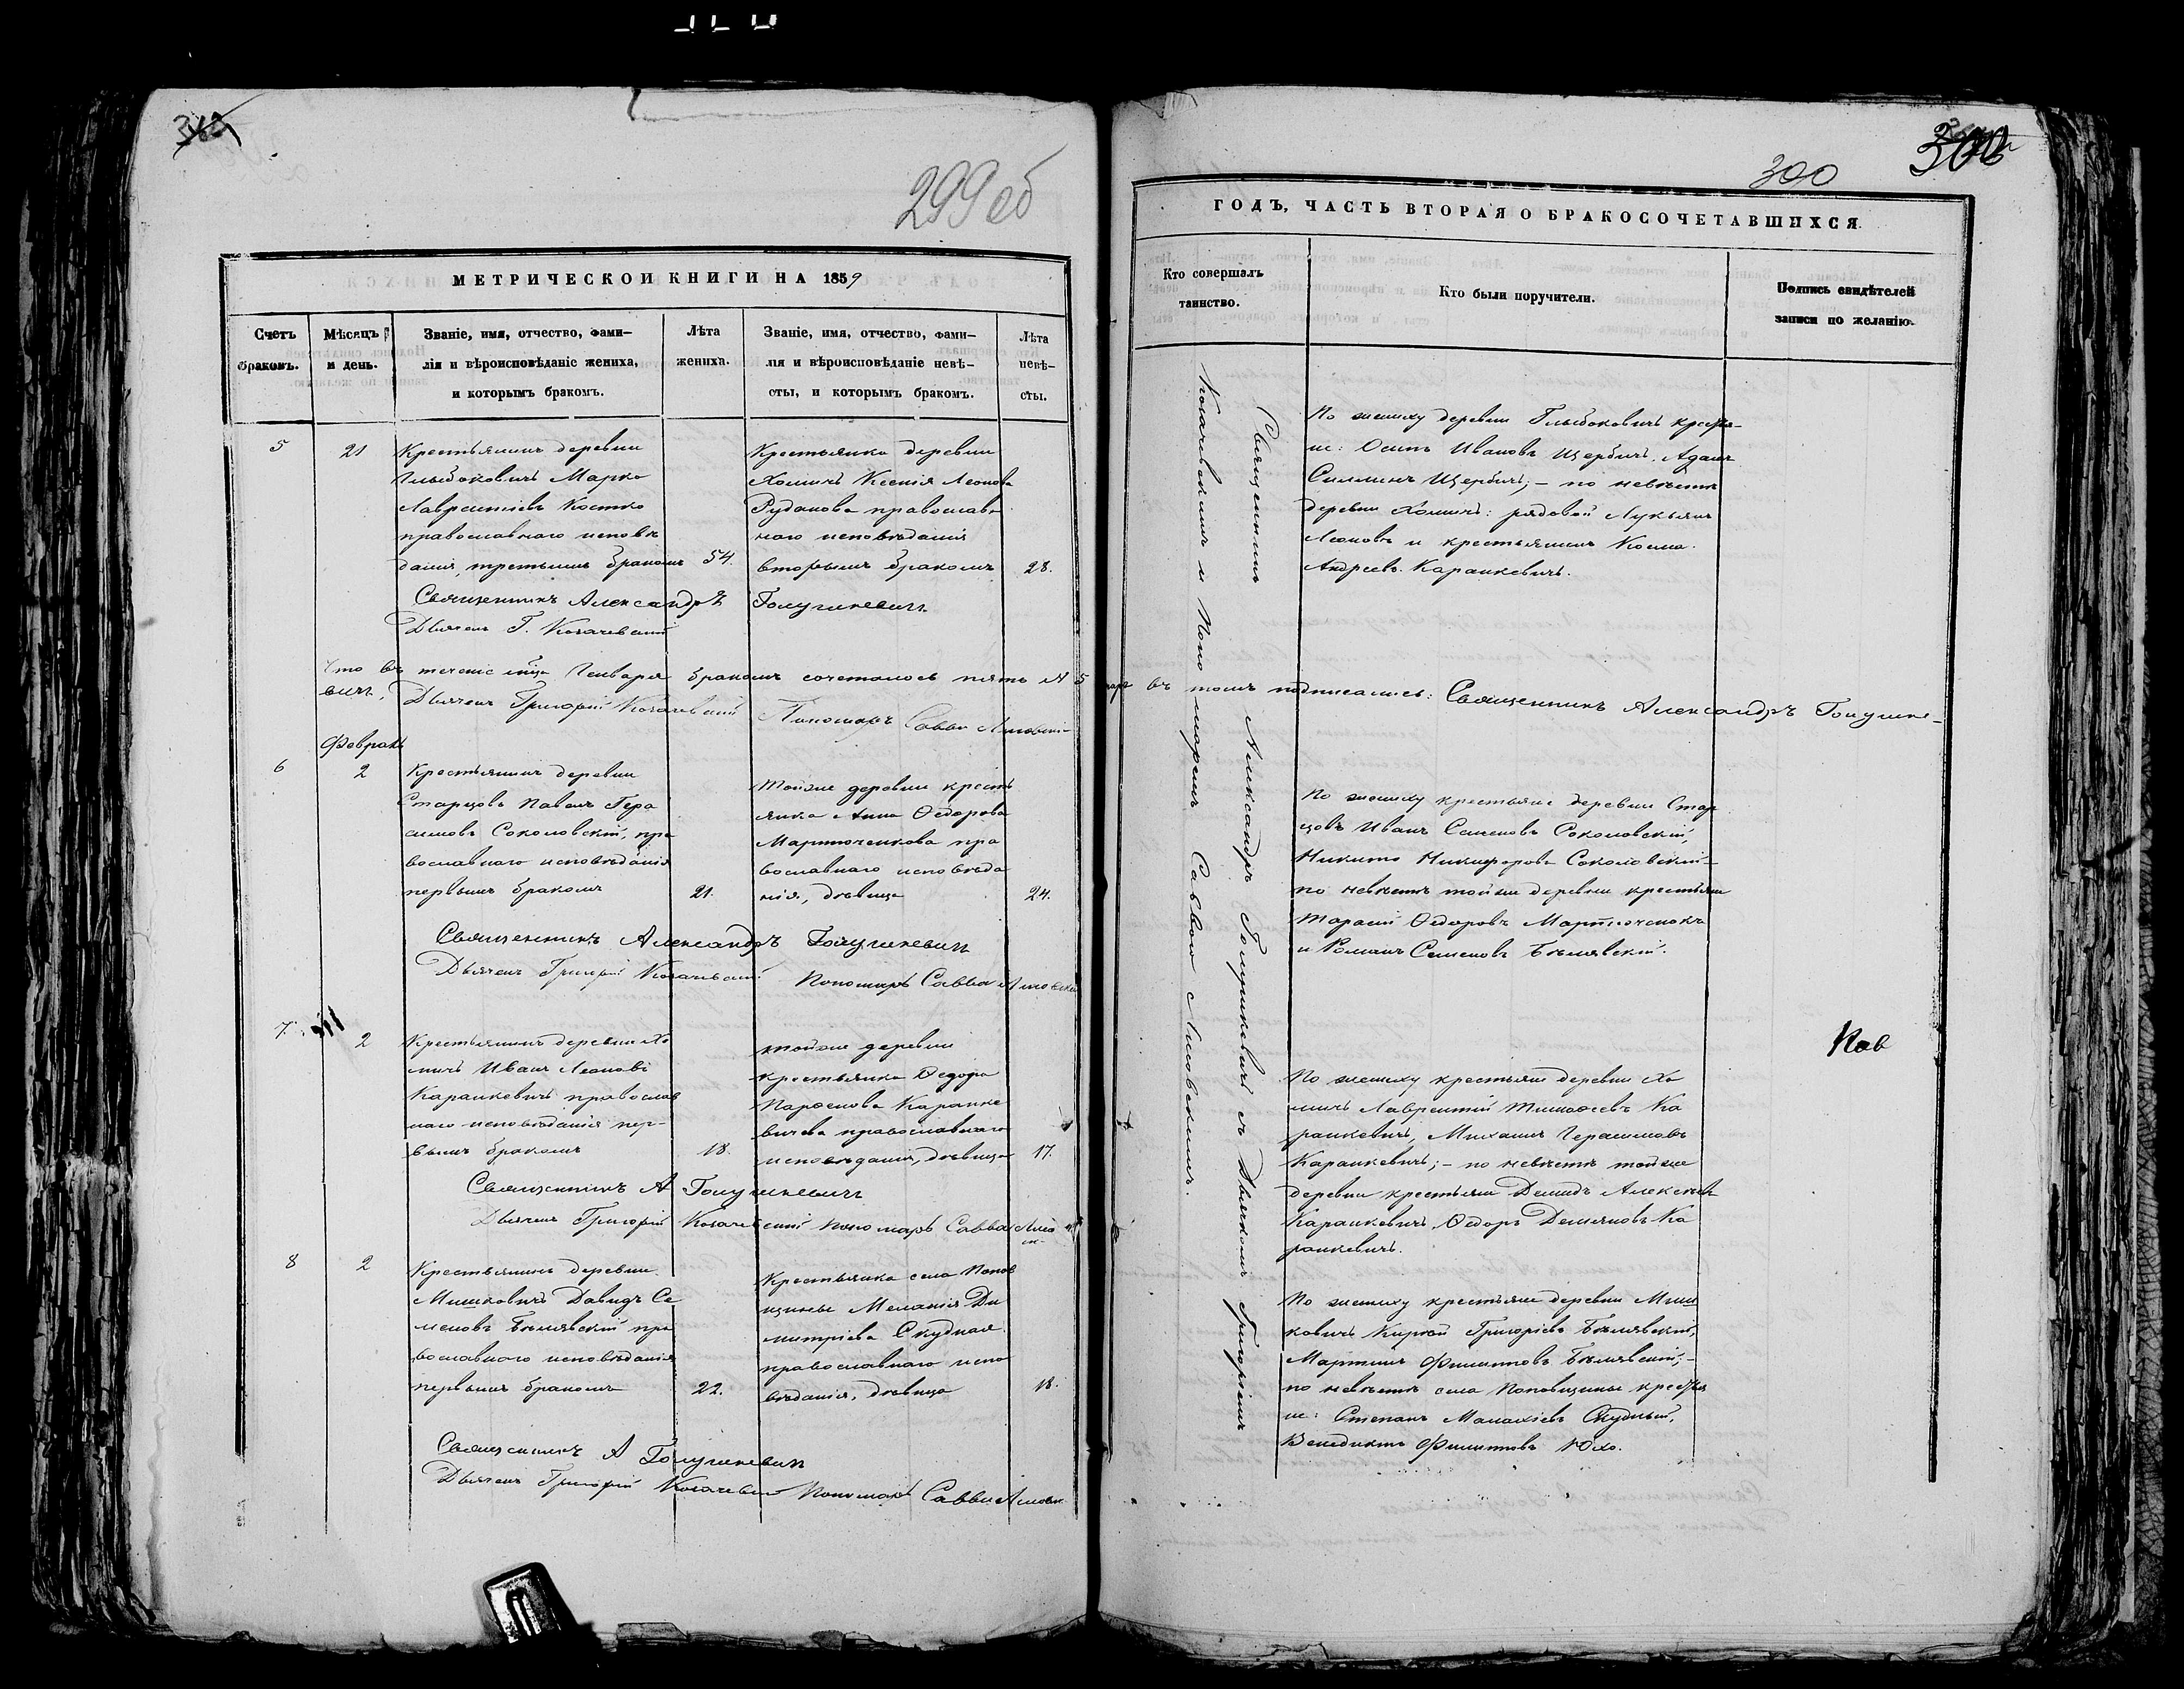 299 об
МЕТРИЧЕСКОЙ КНИГИ НА 1859
Счетъ браковъ.
Мѣсяцъ и день.
Званіе, имя, отчество, фами-
лія и вѣроисповѣданіе жениха,
и которымъ бракомъ.
Лѣта
жениха.
Званіе, имя, отчество, фами-
лія и вѣроисповѣданіе невѣ-
сты, и которымъ бракомъ.
Лѣта
невѣ-
сты.
5
21
Крестьянинъ деревни
Глыбоковичъ Марко
Лаврентіевъ Костко
православнаго исповѣ
данія, третьимъ бракомъ
54.
Крестьянка деревни
Хоминъ Ксенія Леонова
Рудакова православ
наго исповѣданія
вторымъ бракомъ
28.
Священникъ Александръ Голушкевичъ
Дьячекъ Г. Козачевскій
Что въ теченіе мѣсца Генваря бракомъ сочеталось пять № 5 паръ въ томъ подписались: Священникъ Александръ Голушке-
вичъ, Дьячекъ Григорій Козачевскій Пономарь Савва
Февраль
6
2
Крестьянинъ деревни
Старцовъ Павелъ Гера
симовъ Соколовскій, пра
вославнаго исповѣданія
первымъ бракомъ
21.
Тойже деревни кресть
янка Анна Ѳедорова
Мартюченкова пра
вославнаго исповѣда
нія, дѣвица
24.
Священникъ Александръ Голушкевичъ
Дьячекъ Григорій Козачевскій Пономарь Савва
7
2
Крестьянинъ деревни Хо
мичъ Иванъ Леоновъ
Каранкевичъ православ
наго исповѣданія пер-
вымъ бракомъ
18.
тойже деревни
крестьянка Ѳедора
Парѳенова Каранке
вичева православнаго
исповѣданія, дѣвица
17.
Священникъ А Голушкевичъ
Дьячекъ Григорій Козачевскій Пономарь Савва
8
2
Крестьянинъ деревни
Мишковичъ Давидъ Се
меновъ Бѣлявскій пра
вославнаго исповѣданія
первымъ бракомъ
22.
Крестьянка села Попов
щины Меланія Ди
митріева Скудная
православнаго испо
вѣданія, дѣвица
18.
Священникъ А Голушкевичъ
Дьячекъ Григорій Козачевскій Пономарь Савва
300
300
ГОДЪ, ЧАСТЬ ВТОРАЯ О БРАКОСОЧЕТАВШИХСЯ.
Кто совершалъ
таинство.
Кто были поручители.
Подпись свидѣтелей
записи по желанію.
Священникъ Александръ Голушкевичъ съ Дьячкомъ Григоріемъ
Козачевскимъ и Пономаремъ Саввою Лисовскимъ.
По жениху деревни Глыбоковичъ крестья-
не: Осипъ Ивановъ Щербичъ, Адамъ
Щербичъ; – по невѣстѣ
деревни Хоминъ: рядовой Лукьянъ
Леоновъ и крестьянинъ Косма
Андреевъ Каранкевичъ.
По жениху крестьяне деревни Стар
цовъ Иванъ Семеновъ Соколовскій,
Никита Никифоровъ Соколовскій –
по невѣстѣ тойже деревни крестьяне
Тарасій Ѳедоровъ Мартюченокъ
и Романъ Семеновъ Бѣлявскій.
По жениху крестьяне деревни Хо
мичъ Лаврентій Тимоѳеевъ Ка
ранкевичъ, Михаилъ Герасимовъ
Каранкевичъ; – по невѣстѣ тойже
деревни крестьяне Демидъ Алексѣевъ
Каранкевичъ, Ѳедоръ Демьяновъ Ка
ранкевичъ.
По жениху крестьяне деревни Миш
ковичъ Григоріевъ Бѣлявскій,
Мартинъ Филиповъ Бѣлявскій; –
по невѣстѣ села Поповщины крестья
не: Степанъ Малахіевъ Скудный,
Венедиктъ Филиповъ Юхо.